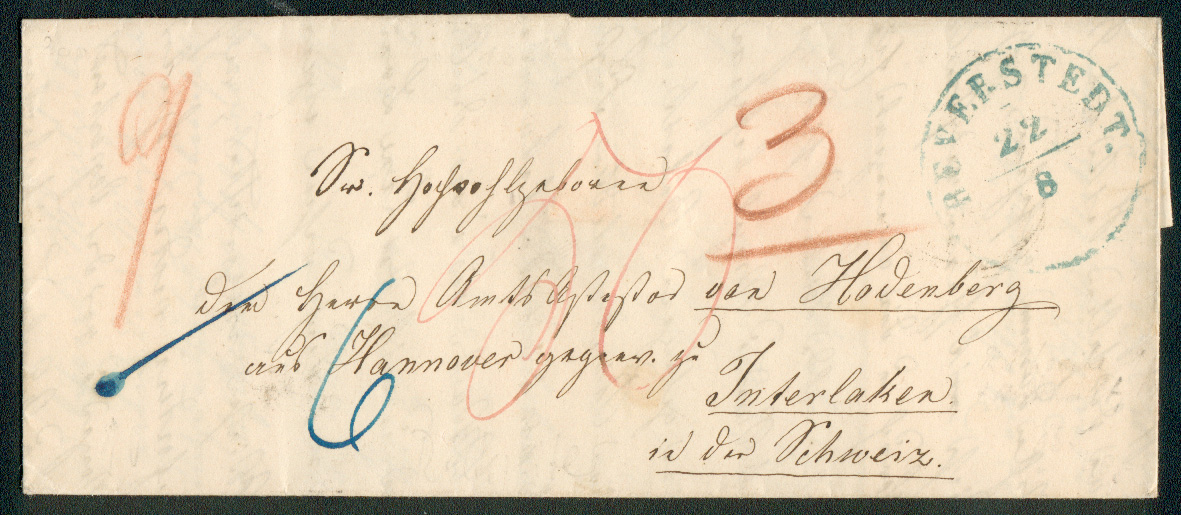 BREVERSTEDT.
22
8
9
3
6
Sr. Hochwohlgeboren
dem Herrn Amts Assessor von Hodenberg
aus Hannover gegenw. zu
Interlaken.
in der Schweiz.